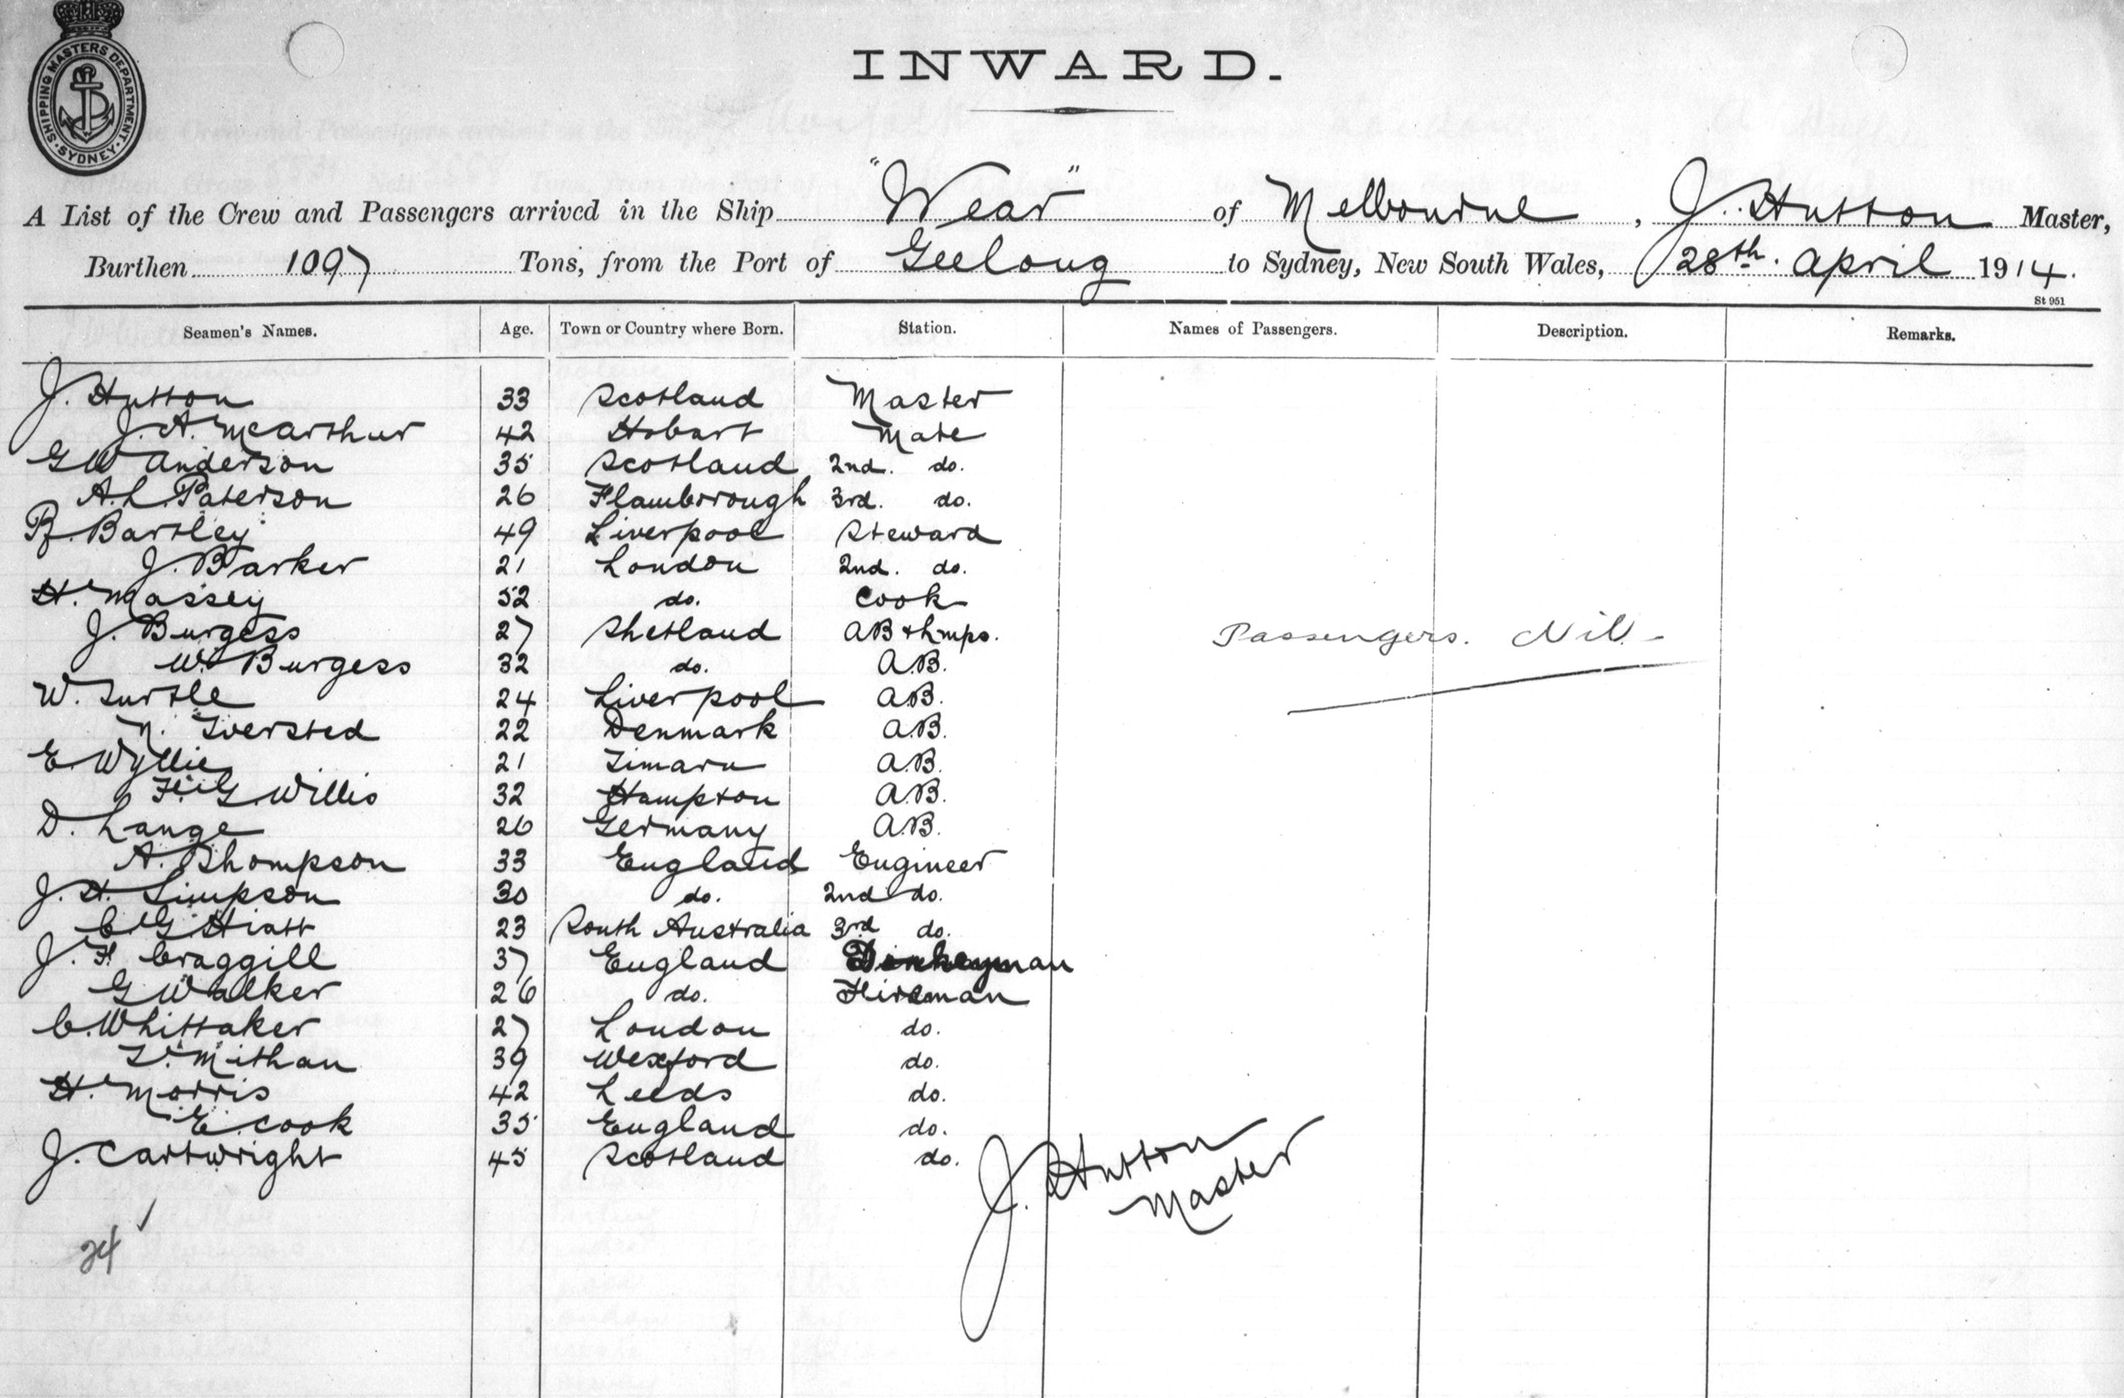 SHIPPING MASTERS DEPARTMENT. SYDNEY.
INWARD.
A List of the Crew and Passengers arrived in the Ship "Wear" of Melbourne, J. Hutton Master,
Burthen 1097 Tons, from the Port of Geelong to Sydney, New South Wales, 28th. April 1914.
St 951
Seamen's Names. Age. Town or Country where Born. Station. Names of Passengers. Description. Remarks.
J. Hutton 33 Scotland Master
J. A. McArthur 42 Hobart Mate
G W Anderson 35 Scotland 2nd. do.
A. L. Paterson 26 Flamborough 3rd. do.
Bartley 49 Liverpool Steward
J. Barker 21 London 2nd. do.
H. Massey 52 do. Cook
J. Burgess 27 Shetland AB & Lmps.
W. Burgess 32 do. A.B.
Passengers. Nil.
W. Turtle 24 Liverpool A.B.
N. Iversted 22 Denmark A.B.
E. Wyllie 21 Timaru A.B.
F. G. Willis 32 Hampton A.B.
D. Lange 26 Germany A.B.
A. Thompson 33 England Engineer
J. H. Simpson 30 do. 2nd do.
C. G. Hiatt 23 South Australia 3rd do.
J. F. Craggill 37 England Donkeyman
G Walker 26 do. Fireman
C. Whittaker 27 London do.
T. Mithan 39 Wexford do.
H. Morris 42 Leeds do.
E. Cook 35 England do.
J. Cartwright 45 Scotland do.
J. Hutton
Master
24